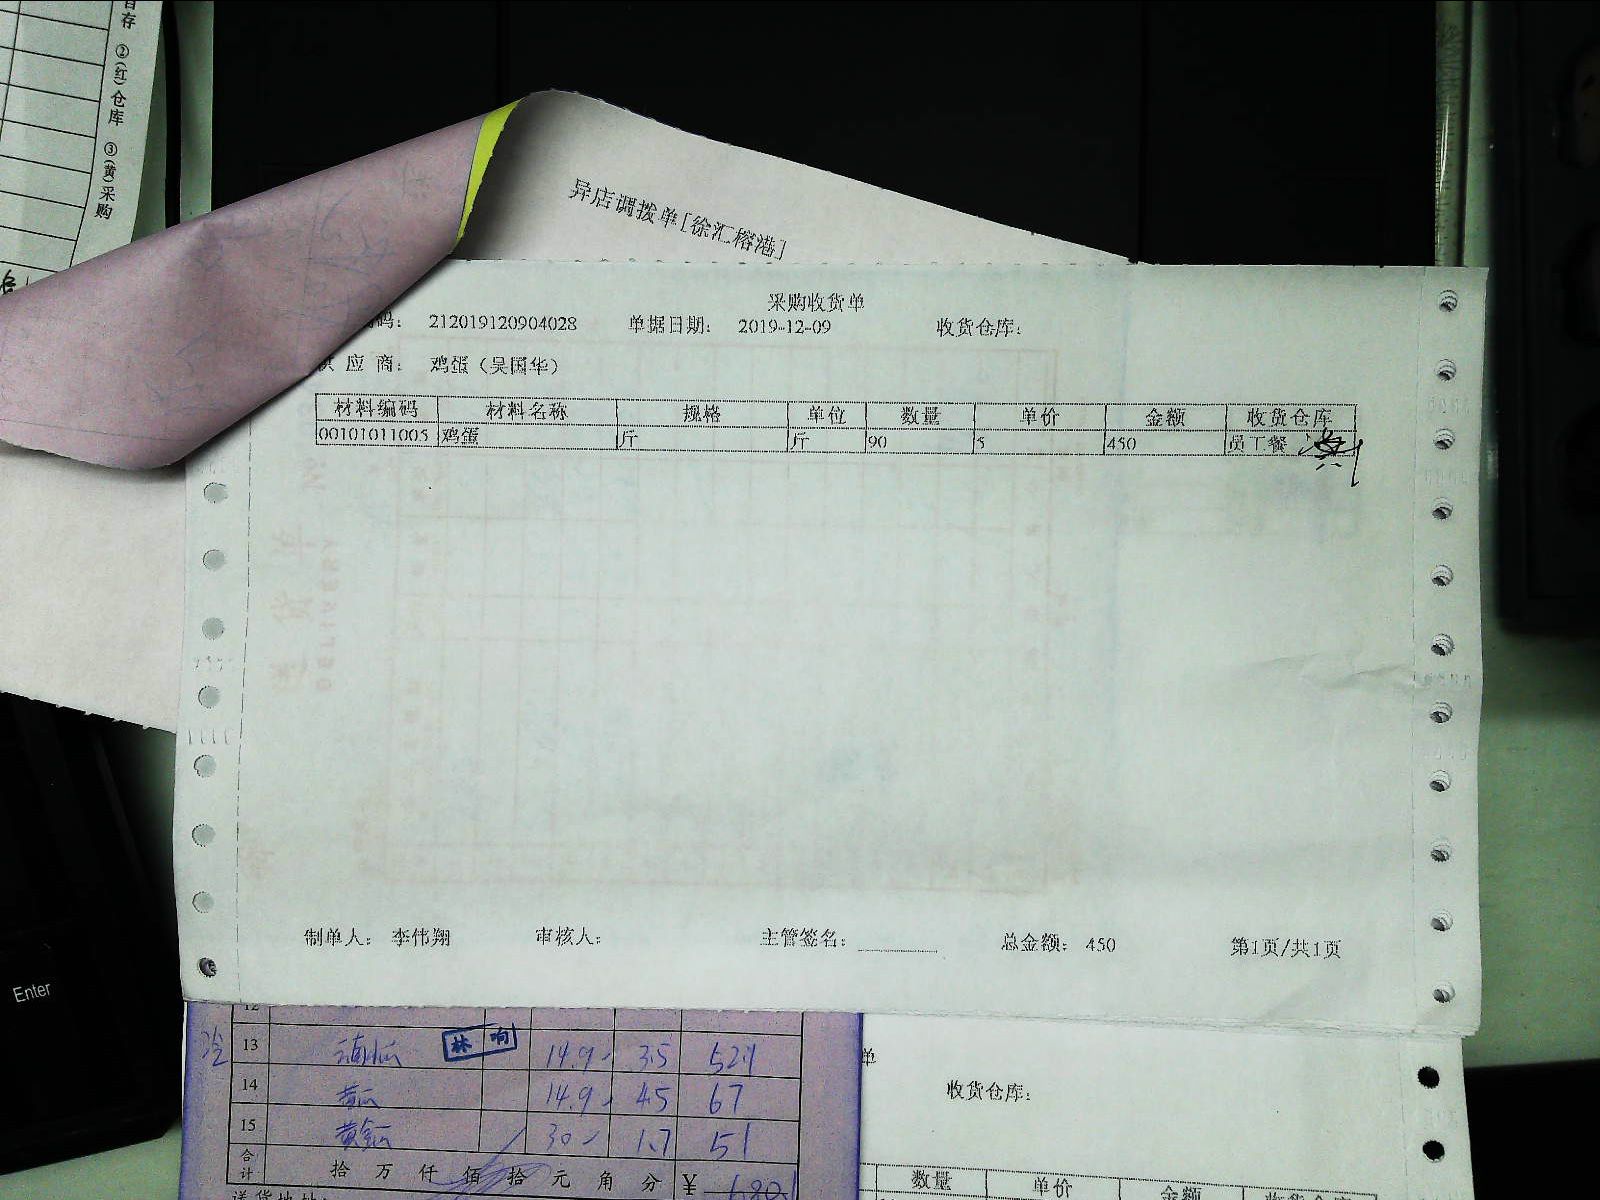 存 ②(红)仓库 ③(黄)采购
异店调拨单[徐汇榕港]
采购收货单
码： 212019120904028 单据日期： 2019-12-09 收货仓库：
供 应 商： 鸡蛋（吴国华）
材料编码 材料名称 规格 单位 数量 单价 金额 收货仓库
00101011005 鸡蛋 斤 斤 90 5 450 员工餐
制单人： 李伟翔 审核人： 主管签名： 总金额： 450 第1页/共1页
Enter
12
13 林 响 14.9 3.5 52.1
14 黄瓜 14.9 4.5 67
15 30 1.7 51
合计 拾 万 仟 佰 拾 元 角 分 ¥
送货地址：
单
收货仓库：
数量 单价 金额 收货仓库